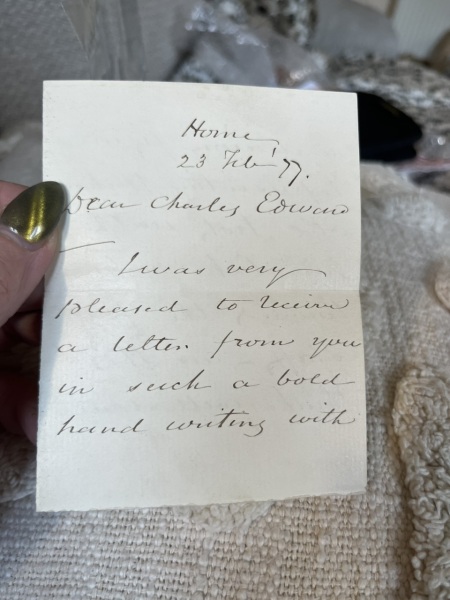 Home
23 Feb' 77.
Dear Charles Edward
I was very
pleased to receive
a letter from you
in such a bold
hand writing with